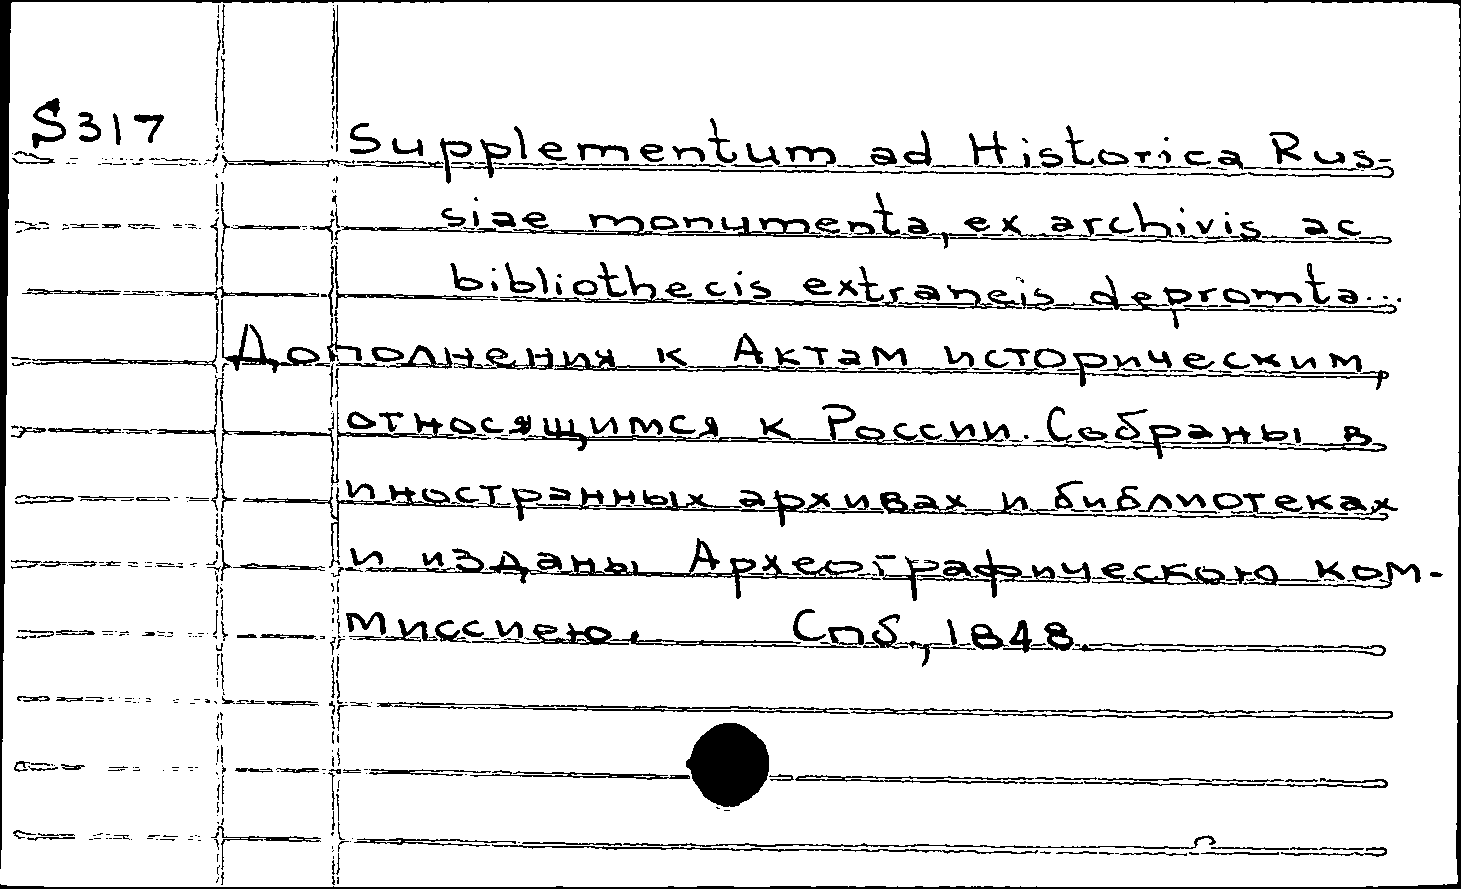 S317
Supplementum ad Historica Rus-
siae monumenta, ex archivis ac
bibliothecis extraneis depromta...
Дополнения к Актам историческим,
относящимся к России. Собраны в
иностранных архивах и библиотеках
и изданы Археографическою ком-
миссиею. Спб., 1848.